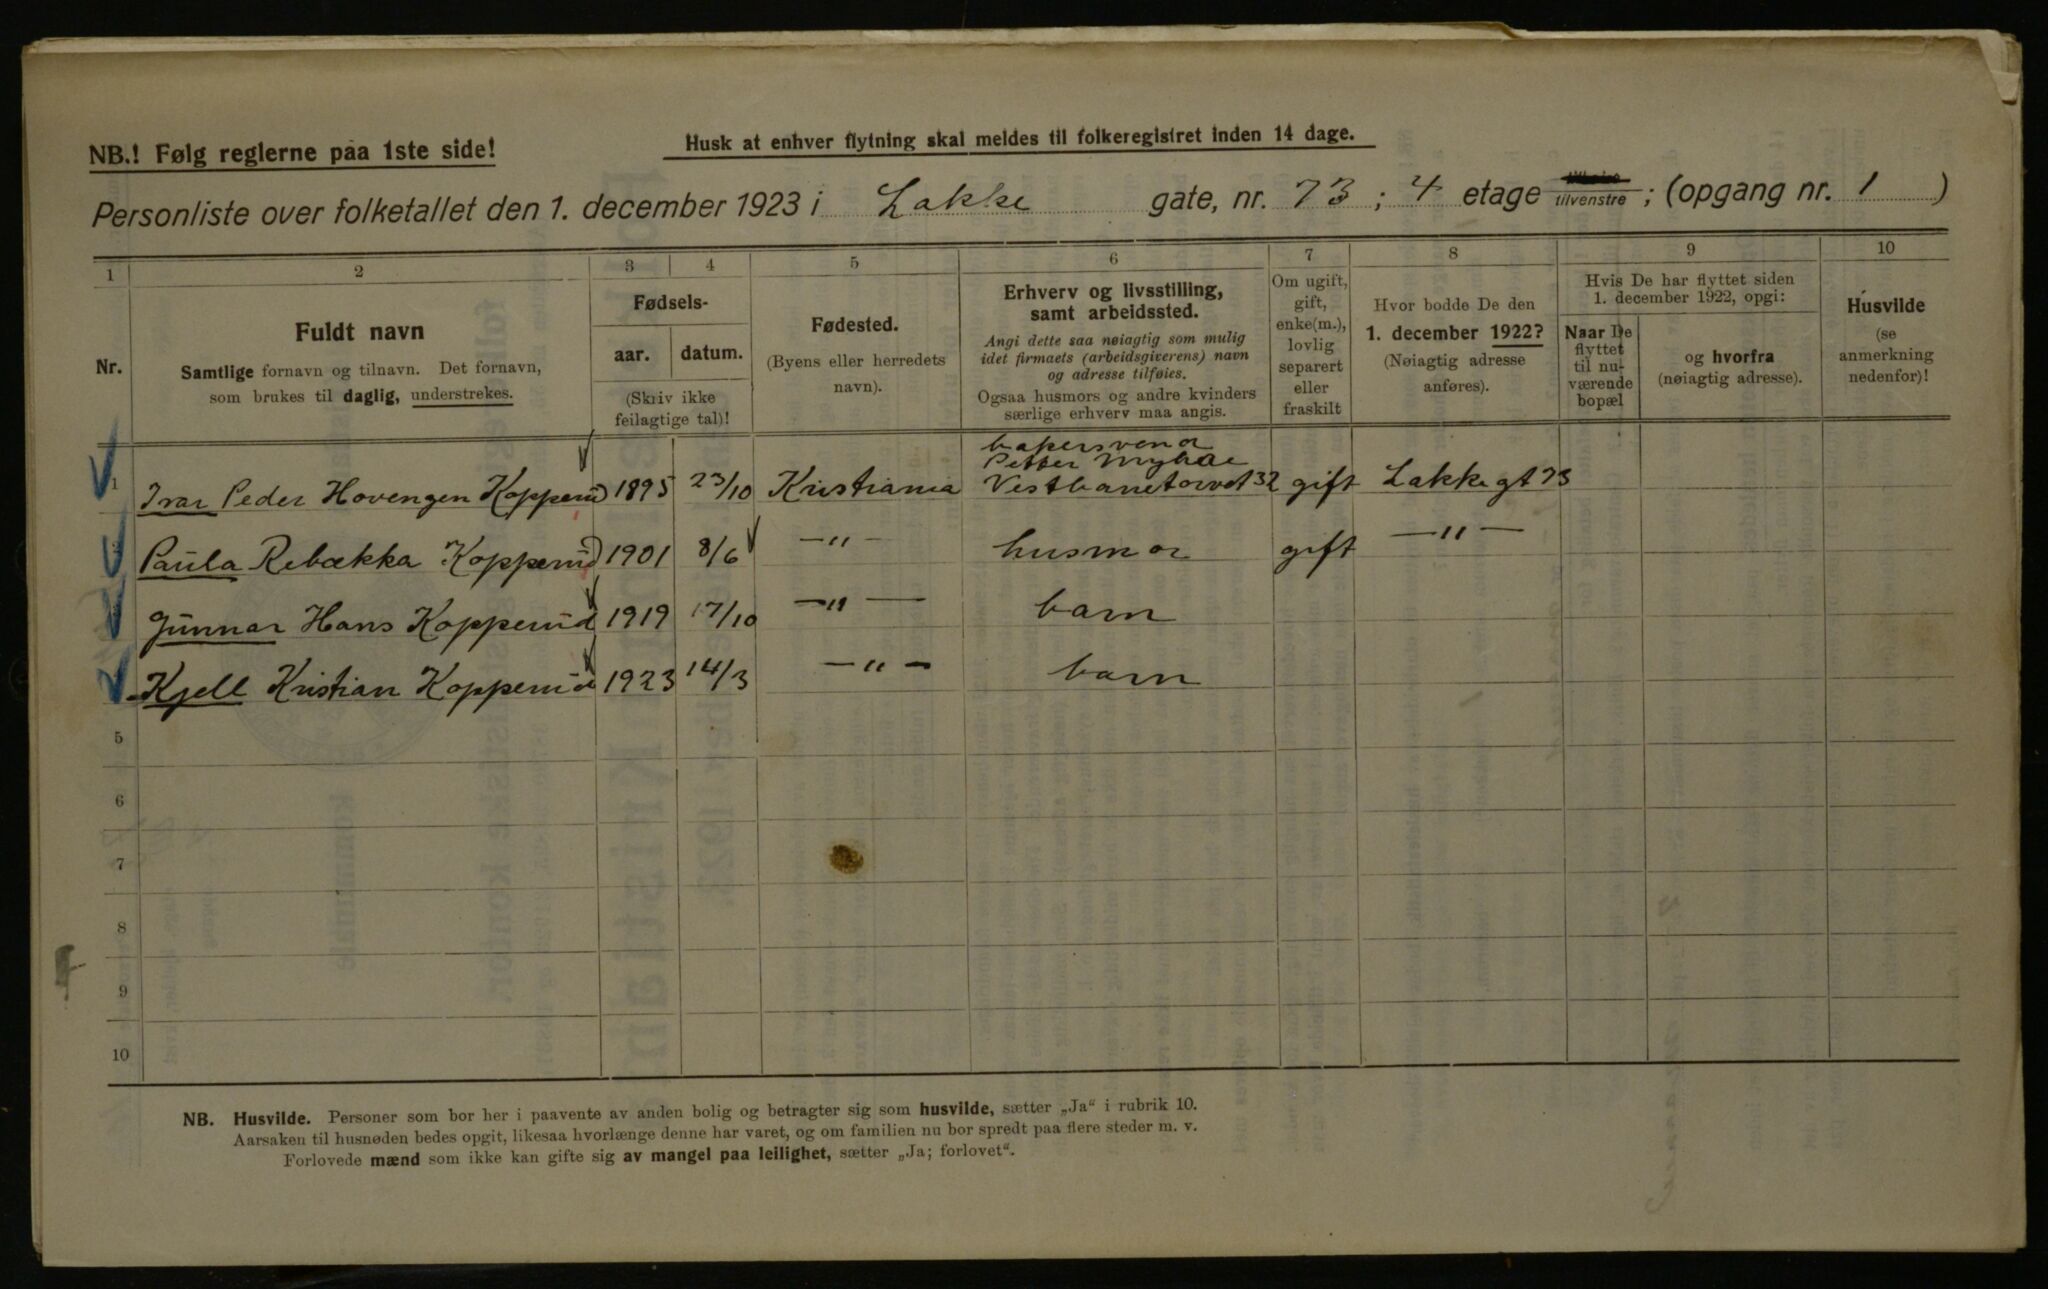 NB.! Følg reglerne paa 1ste side!
Husk at enhver flytning skal meldes til folkeregistret inden 14 dage.
Personliste over folketallet den 1. december 1923 i Lakke gate, nr. 73; 4 etage tilvenstre; (opgang nr. 1)
1 2 3 4 5 6 7 8 9 10
Nr.
Fuldt navn
Samtlige fornavn og tilnavn. Det fornavn,
som brukes til daglig, understrekes.
Fødsels-
aar. datum.
(Skriv ikke
feilagtige tal)!
Fødested.
(Byens eller herredets
navn).
Erhverv og livsstilling,
samt arbeidssted.
Angi dette saa nøiagtig som mulig
idet firmaets (arbeidsgiverens) navn
og adresse tilføies.
Ogsaa husmors og andre kvinders
særlige erhverv maa angis.
Om ugift,
gift,
enke(m.),
lovlig
separert
eller
fraskilt
Hvor bodde De den
1. december 1922?
(Nøiagtig adresse
anføres).
Hvis De har flyttet siden
1. december 1922, opgi:
Naar De
flyttet
til nu-
værende
bopæl
og hvorfra
(nøiagtig adresse).
Husvilde
(se
anmerkning
nedenfor)!
bakersvend
Petter Myhre
1 Ivar Peder Hovengen Kopperud 1895 23/10 Kristiania Vestbanetorvet 32 gift Lakkegt 73
2 Paula Rebækka Kopperud 1901 8/6 —"— husmor gift —"—
3 Gunnar Hans Kopperud 1919 17/10 —"— barn
Kjell Kristian Kopperud 1923 14/3 —"— barn
5
6
7
8
9
10
NB. Husvilde. Personer som bor her i paavente av anden bolig og betragter sig som husvilde, sætter „Ja“ i rubrik 10.
Aarsaken til husnøden bedes opgit, likesaa hvorlænge denne har varet, og om familien nu bor spredt paa flere steder m. v.
Forlovede mænd som ikke kan gifte sig av mangel paa leilighet, sætter „Ja; forlovet“.